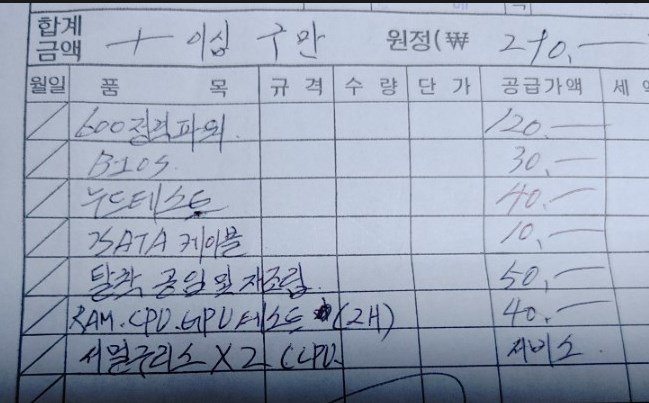 합계
금액 이십 구만 원정(₩ 290,—
월일 품 목 규격 수량 단가 공급가액 세액
600정격파워. 120.—
BIOS. 30.—
누드테스트 40.—
SATA 케이블 10.—
탈착 공임 및 재조립. 50.—
RAM.CPU.GPU테스트 (2H) 40.—
서멀구리스 X2 (CPU. 서비스.